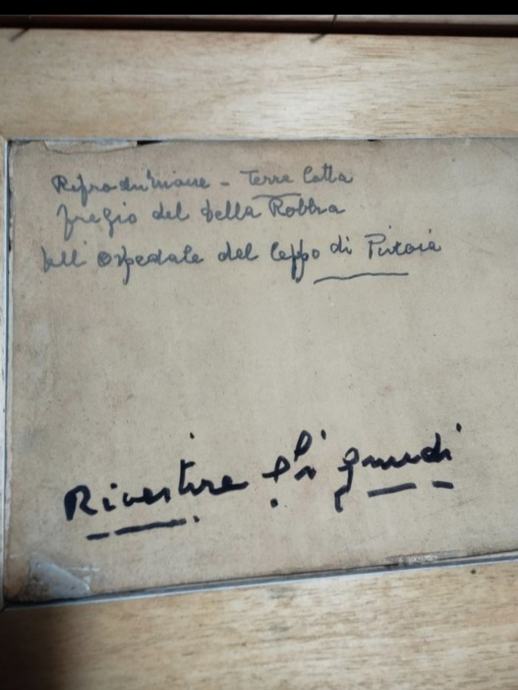 Riproduzione - Terra Cotta
fregio del Della Robbia
all'ospedale del Ceppo di Pistoia
Rivestire gl'i gnudi